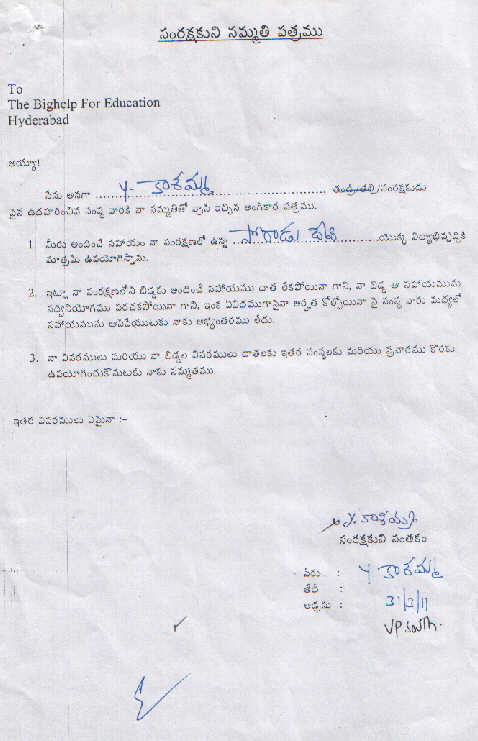 సంరక్షకుని సమ్మతి పత్రము
To
The Bighelp For Education
Hyderabad
అయ్యా!
నేను అనగా Y. కాశమ్మ తండ్రి/తల్లి/సంరక్షకుడు
పైన ఉదహరించిన సంస్థ వారికి నా సమ్మతితో వ్రాసి ఇచ్చిన అంగీకార పత్రము.
1. మీరు అందించే సహాయం నా సంరక్షణలో ఉన్న యొక్క విద్యాభివృద్ధికి
మాత్రమే ఉపయోగిస్తాను.
2. ఇట్లా నా సంరక్షణలోని బిడ్డకు అందించే సహాయము దాత లేకపోయినా గాని, నా బిడ్డ ఆ సహాయమును
సద్వినియోగము పరచకపోయినా గాని, ఇంకే విధముగానైనా అర్హత కోల్పోయినా పై సంస్థ వారు మధ్యలో
సహాయమును ఆపివేయుటకు నాకు అభ్యంతరము లేదు.
3. నా వివరములు మరియు నా బిడ్డల వివరములు దాతలకు ఇతర సంస్థలకు మరియు ప్రచారము కొరకు
ఉపయోగించుకొనుటకు నాకు సమ్మతము
ఇతర వివరములు ఏమైనా :-
Y. కాశమ్మ
సంరక్షకుని సంతకం
పేరు : Y కాశమ్మ
తేది :
అడ్రసు : 31/3/11